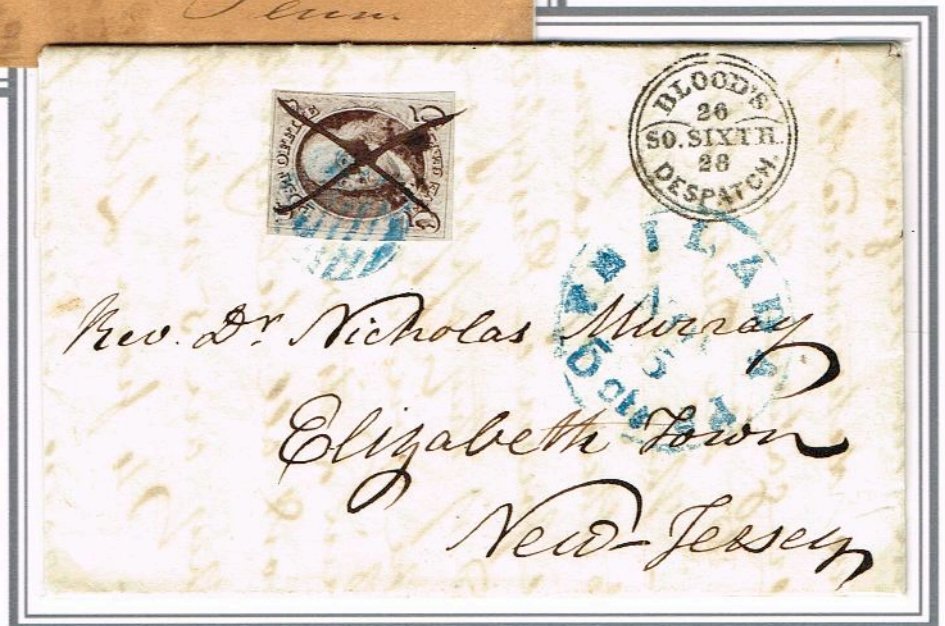 Penn.
BLOOD'S
26
SO. SIXTH.
28
DESPATCH.
PHILADA
5
5cts
Rev. Dr. Nicholas Murray
Elizabeth Town
New-Jersey